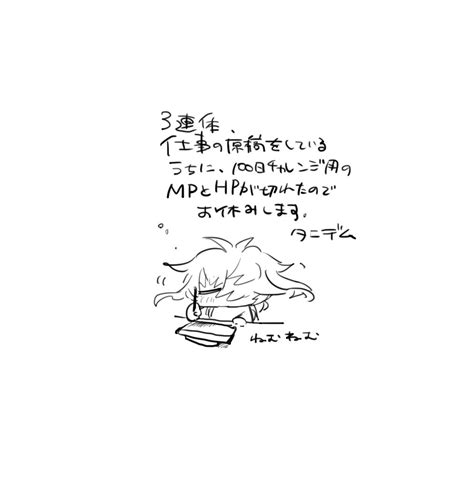 3連休、
仕事の原稿をしている
うちに、100日チャレンジ用の
MPとHPが切れたので
お休みします。
タニデム
ねむねむ